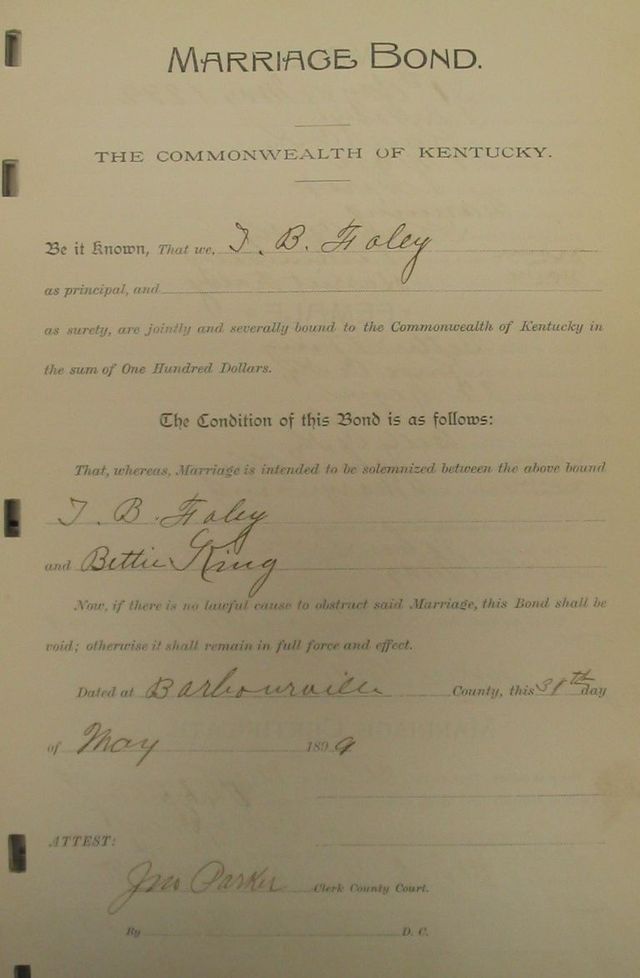 MARRIAGE BOND.
THE COMMONWEALTH OF KENTUCKY.
Be it Known, That we, T. B. Foley
as principal, and
as surety, are jointly and severally bound to the Commonwealth of Kentucky in
the sum of One Hundred Dollars.
The Condition of this Bond is as follows:
That, whereas, Marriage is intended to be solemnized between the above bound
T. B. Foley
and Bettie King
Now, if there is no lawful cause to obstruct said Marriage, this Bond shall be
void; otherwise it shall remain in full force and effect.
Dated at Barbourville County, this 31th day
of May 1899
ATTEST:
Jno Parker Clerk County Court.
By D. C.